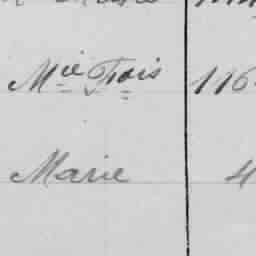 Mie Frois 116
Marie 4